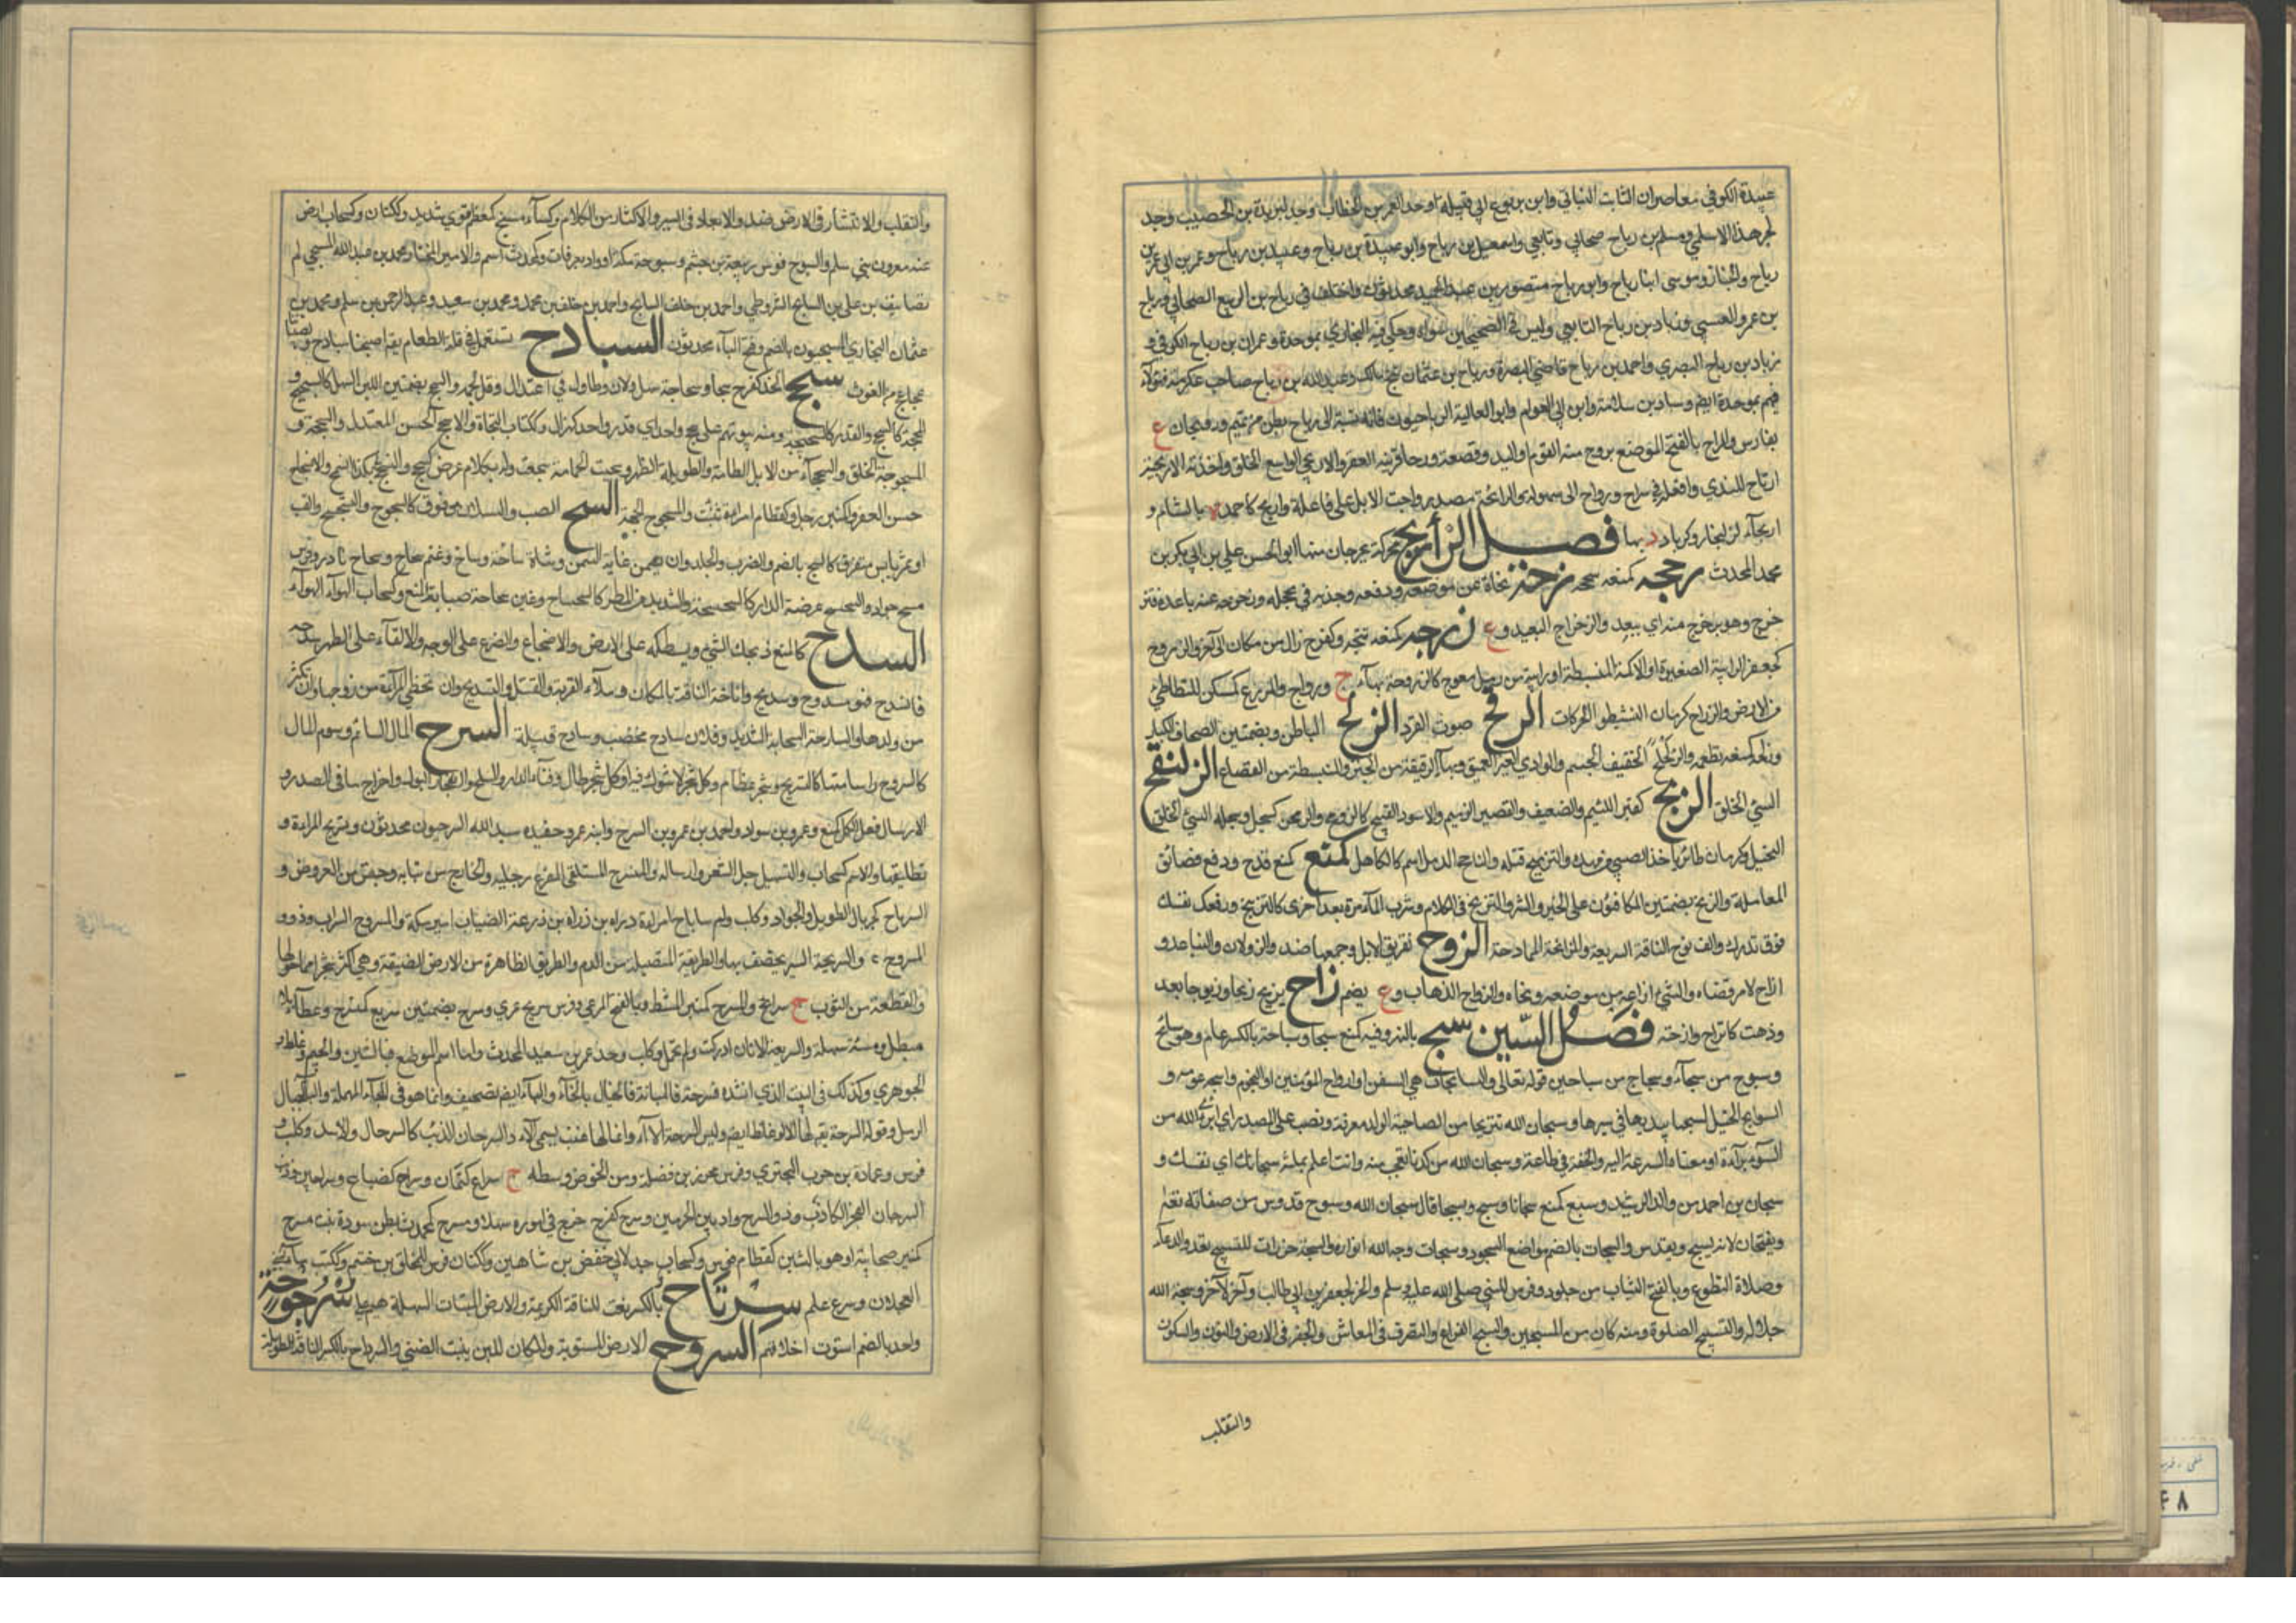 عبيدة الكوفي معاصران لثابت البناني وابن يربوع ابي قبيلة وجد لعمر بن الخطاب وجد لبريدة بن الحصيب وجد
لجرهد الاسلمي ومسلم بن رياح صحابي وتابعي واسمعيل بن رياح وابو عبيدة بن رياح وعبيد بن رياح وعمر بن ابي عمر بن
رياح والخيار وموسى ابنا رياح وابو رياح منصور بن عبد الحميد محدثون واختلف في رياح بن الربيع الصحابي ورياح
بن عمرو العبسي وزياد بن رياح التابعي وليس في الصحيحين سواه وحكى فيه البخاري بموحدة وعمران بن رياح الكوفي و
زياد بن رياح البصري واحمد بن رياح قاضي البصرة ورياح بن عثمان شيخ مالك وعبد الله بن رياح صاحب عكرمة فهؤلاء
فيهم بموحدة ايضم وسيار بن سلامة وابن ابي العوام وابو العالية الرياحيون فانه نسبة الى رياح بطن من تميم ورويحان ع
بفارس والمراح بالفتح الموضع يروح منه القوم او اليه وقصعة روحا قريبة القعر والاريحي الواسع الخلق واخذته الاريحية
ارتاح للندى وافعله في سراح ورواح اي سهولة والرائحة مصدر راحت الابل على فاعلة واريح كاحمد ة بالشام و
اريحاء كزليخا وكربلاء د بها فصل الزأ مزيح محركة بجرجان منها ابو الحسن علي بن ابي بكر بن
محمد المحدث زحجه كمنعه سحجه زحه نحاه عن موضعه ودفعه وجذبه في عجلة وزحزحه عنه باعده فتز
حزح وهو بزحزح منه اي ببعد والزحزاح البعيد وع زرحه كمنعه شجه وكفرح زال من مكان الى آخر والزروح
كجعفر الرابية الصغيرة او الاكمة المنبسطة او رابية من رمل معوج كالزروحة بهاء ج زراوح والزرح كسكن المتطاطئ
من الارض والزراح كرمان النشيطو الحركات الزقح صوت القرد الزلح الباطل وبضمتين الصحاف الكبار
وزلحه كمنعه تطعمه والزلحلح الخفيف الجسم والوادي الغير العميق وبهاء الرقيقة من الخبز والمنبسطة من القصاع الزلنقح
السيئ الخلق الزمح كقبر اللئيم والضعيف والقصير الذميم والاسود القبيح كالزومح والزمحن كسجل وسجله السيئ الخلق
البخيل وكرمان طائر ياخذ الصبي من مهده والتزميح قتله والزامح الدمل اسم كالكاهل كمنع كمنع قدح ودفع فضائق
المعاملة والزنح بضمتين المكافئون على الخير والشر والتزنح في الكلام وشرب الماء مرة بعد اخرى كالتزنيح ورفعك نفسك
فوق قدرك والف نوح الناقة السريعة والمزانحة الممادحة الزوح تفريق الابل وجمعها ضد والزولان والتباعد و
ازاح الامر قضاه والشئ ازاغه من موضعه ونحاه والزواح الذهاب وع يضم زاح يزيح زيحا وزيوحا بعد
وذهب كانزاح وازحته فصل السين سبح بالنهر وفيه كمنع سبحا وسباحة بالكسر عام وهو سابح
وسبوح من سبحاء وسباح من سباحين قوله تعالى والسابحات هي السفن او ارواح المؤمنين او النجوم واسبحه عومه و
السوابح الخيل لسبحها بيديها في سيرها وسبحان الله تنزيها من الصاحبة والولد معرفة ونصب على المصدر اي ابرئ الله من
السوء براءة او معناه السرعة اليه والخفة في طاعته وسبحان الله من كذا تعجب منه وانت اعلم بما في سبحانك اي نفسك و
سبحان بن احمد من ولد الرشيد وسبح كمنع سبحانا وسبح تسبيحا قال سبحان الله وسبوح قدوس من صفاته تعالى
ويفتحان لانه يسبح ويقدس والسبحات بالضم مواضع السجود وسبحات وجه الله انواره والسبحة خرزات للتسبيح تعد والدعاء
وصلاة التطوع وبالفتح الثياب من جلود وفرس للنبي صلى الله عليه وسلم وآخر لجعفر بن ابي طالب وآخر لآخر وسبحة الله
جلاله والتسبيح الصلوة ومنه كان من المسبحين والسبح الفراغ والتصرف في المعاش والحفر في الارض والنوم والسكون
والتقلب
والتقلب والانتشار في الارض ضد والابعاد في السير والاكثار من الكلام وكساء مسبح كمعظم قوي شديد وككتان وكسحاب ارض
عند معدن بني سليم والسبوح فرس ربيعة بن جشم وسبوحة مكة او واد بعرفات وكمحدث اسم والامير المختار محمد بن عبيد الله المسبحي له
تصانيف بن علي بن السابح الشروطي واحمد بن خلف السابح واحمد بن خلف بن محمد ومحمد بن سعيد وعبد الرحمن بن سلم ومحمد بن
عثمان البخاري السبحيون بالضم وفتح الباء محدثون السبادح تستعمل في قلة الطعام يقم اصبحنا سبادح ولصبياننا
عجاعج من الغوث سجح الخد كفرح سجحا وسجاحة سهل ولان وطال في اعتدال وقل لحمه والسجح بضمتين اللين السهل كالسجيح و
المحجة كالسجح والقدر كالسجيحة ومنه بيوتهم على سجح واحد اي قدر واحد كغراب وككتاب التجاة والاسجح الحسن المعتدل والسجحة و
المسجوحة الخلق والسجحاء من الابل التامة والطويلة الظهر وسجحت الحمامة سجعت وله بكلام عرض كسجح والتسجح كذا السمح والانسجاح
حسن العفو وكمنبر رجل وكقطام امراة تنبت والمسجوح الجهة السح الصب والسيلان من فوق كالسحوح والتسحسح والقب
او تمر يابس متفرق كالسح بالضم والضرب والجلد وان يسمن غاية السمن وشاة ساحة وساح وغنم سحاح وسحاح نادر وفرس
مسح جواد والسحسح عرصة الدار كالسحسحة والشديد من المطر كالسحساح وعين سحاحة صبابة للدمع وكسحاب الهواء
السدح كالمنع ذبحك الشئ وبسطكه على الارض والاضجاع والصرع على الوجه والالقاء على الظهر سدحه
فانسدح فهو مسدوح وسديح واناخة الناقة بالمكان وملاء القربة والقتل والتسديح وان تحظى المراة من زوجها وان تكثر
من ولدها والسادحة السحابة الشديدة وفلان سادح مخصب وسادح قبيلة السرح المال السائم وسوم المال
كالسروح واسامتها كالتسريح وشجر عظام او كل شجر لا شوك فيه او كل شجر طال وفناء الدار والسلح وانفجار البول واخراج ما في الصدر و
الارسال فعل الكل كمنع وعمرو بن سواد واحمد بن عمرو بن السرح وابنه عمرو وحفيده عبد الله السرحيون محدثون وتسريح المراة و
تطليقها والاسم كسحاب والتسهيل وحل الشعر وارساله والمنسرح المستلقي المفرج رجليه والخارج من ثيابه وجنس من العروض و
السرياح كجريال الطويل والجواد وكلب وام سرياح امراة دراج بن زرعة الضبابي امير مكة والمسروح السراب وذو
المسروح ع والسريحة السير يخصف بها والطريقة المستطيلة من الدم والطريق الظاهرة من الارض الضيقة وهي اكثر شجرا مما حولها
والقطعة من الثوب ج سرائح والمسرح كمنبر المشط وبالفتح المرعى وفرس سريح عري وسرح بضمتين سريع كمنسرح وعطاء بلا
مطل ومشية سهلة والسرحة الاتان ادركت ولم تحمل وكلب وجد عمر بن سعيد المحدث واما اسم الموضع فبالشين والجيم وغلط
الجوهري وكذلك في البيت الذي انشده فسرحة فالمرانة فالخيال بالخاء والياء ايضم تصحيف وانما هو في بالحاء المهملة والباء لحبال
الرمل وقوله السرحة يقم لها الآء غلط ايضم وليس السرحة الآء وانما لها عنب يسمى الآء والسرحان الذئب كالسرحال والاسد وكلب و
فرس عمارة بن حرب البحتري وفرس محرز بن فضلة ومن الحوض وسطه ج سراح كثمان وسراح كضباع وسراحين وذنب
السرحان الفجر الكاذب وذو السرح واد بين الحرمين وسرح كفرح خرج في اموره سهلا ومسرح كمحدث بطن سودة بنت مسرح
كمنبر صحابية او هو بالشين كقطام فرس وكسحاب جد لابي حفص بن شاهين وككتان فرس المحلق بن حنتم وككتب ماء لبني
العجلان وسرح علم سرتاح بالكسر نعت للناقة الكريمة والارض المنبات السهلة هم على سرجوجة
واحد بالضم استوت اخلاقهم السروح الارض المستوية والمكان اللين ينبت النصي والسرداح بالكسر الناقة الطويلة